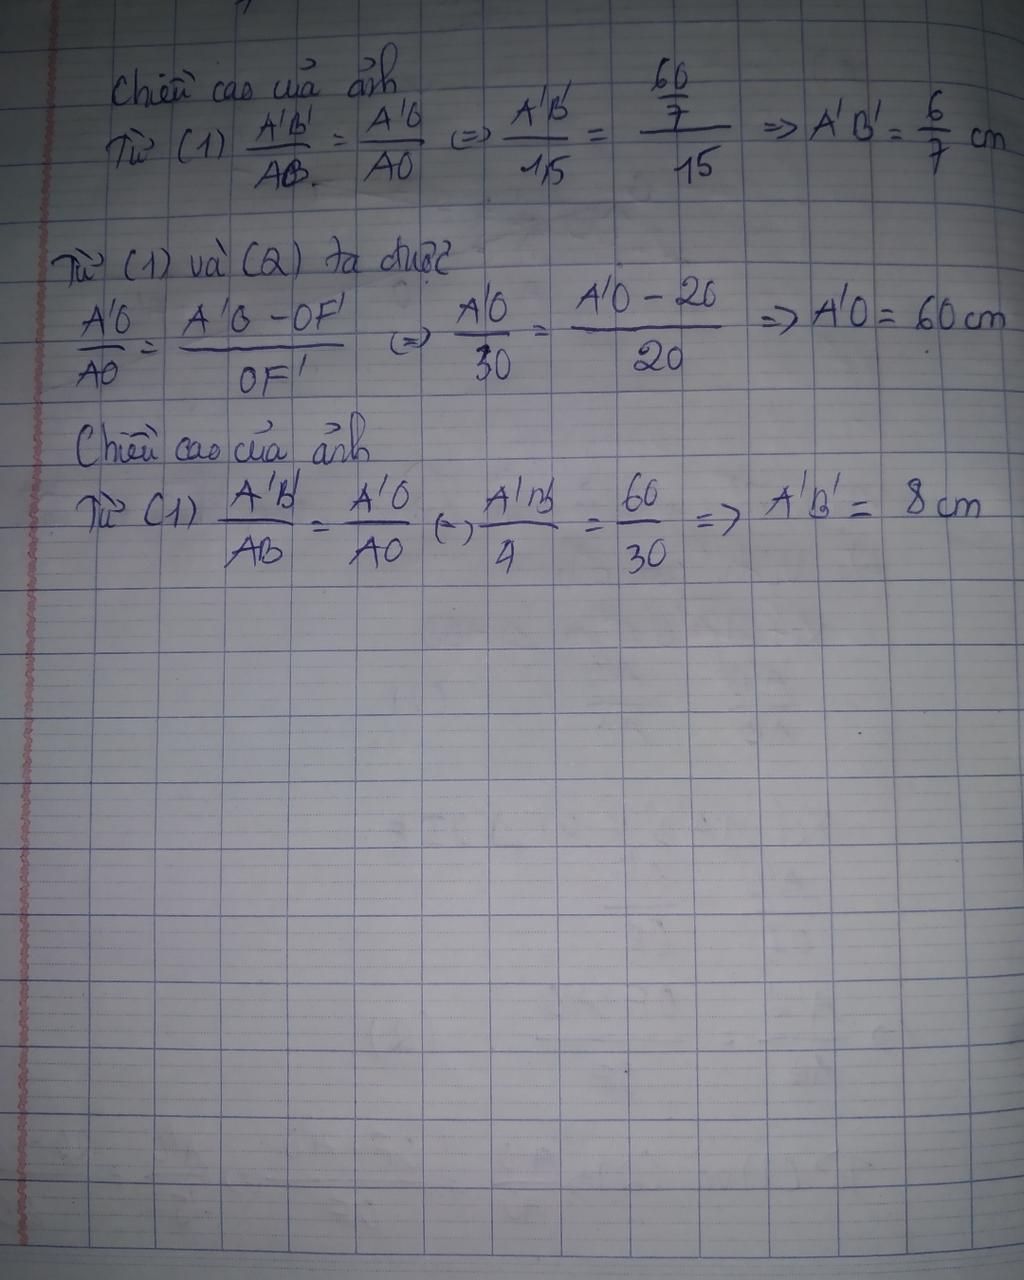 Chiều cao của ảnh
Từ (1) A'B'/AB = A'O/AO (=) A'B'/1,5 = (60/7)/15 => A'B' = 6/7 cm
Từ (1) và (2) ta được
A'O/AO = (A'O - OF')/OF' (=) A'O/30 = (A'O - 20)/20 => A'O = 60 cm
Chiều cao của ảnh
Từ (1) A'B'/AB = A'O/AO (=) A'B'/4 = 60/30 => A'B' = 8 cm